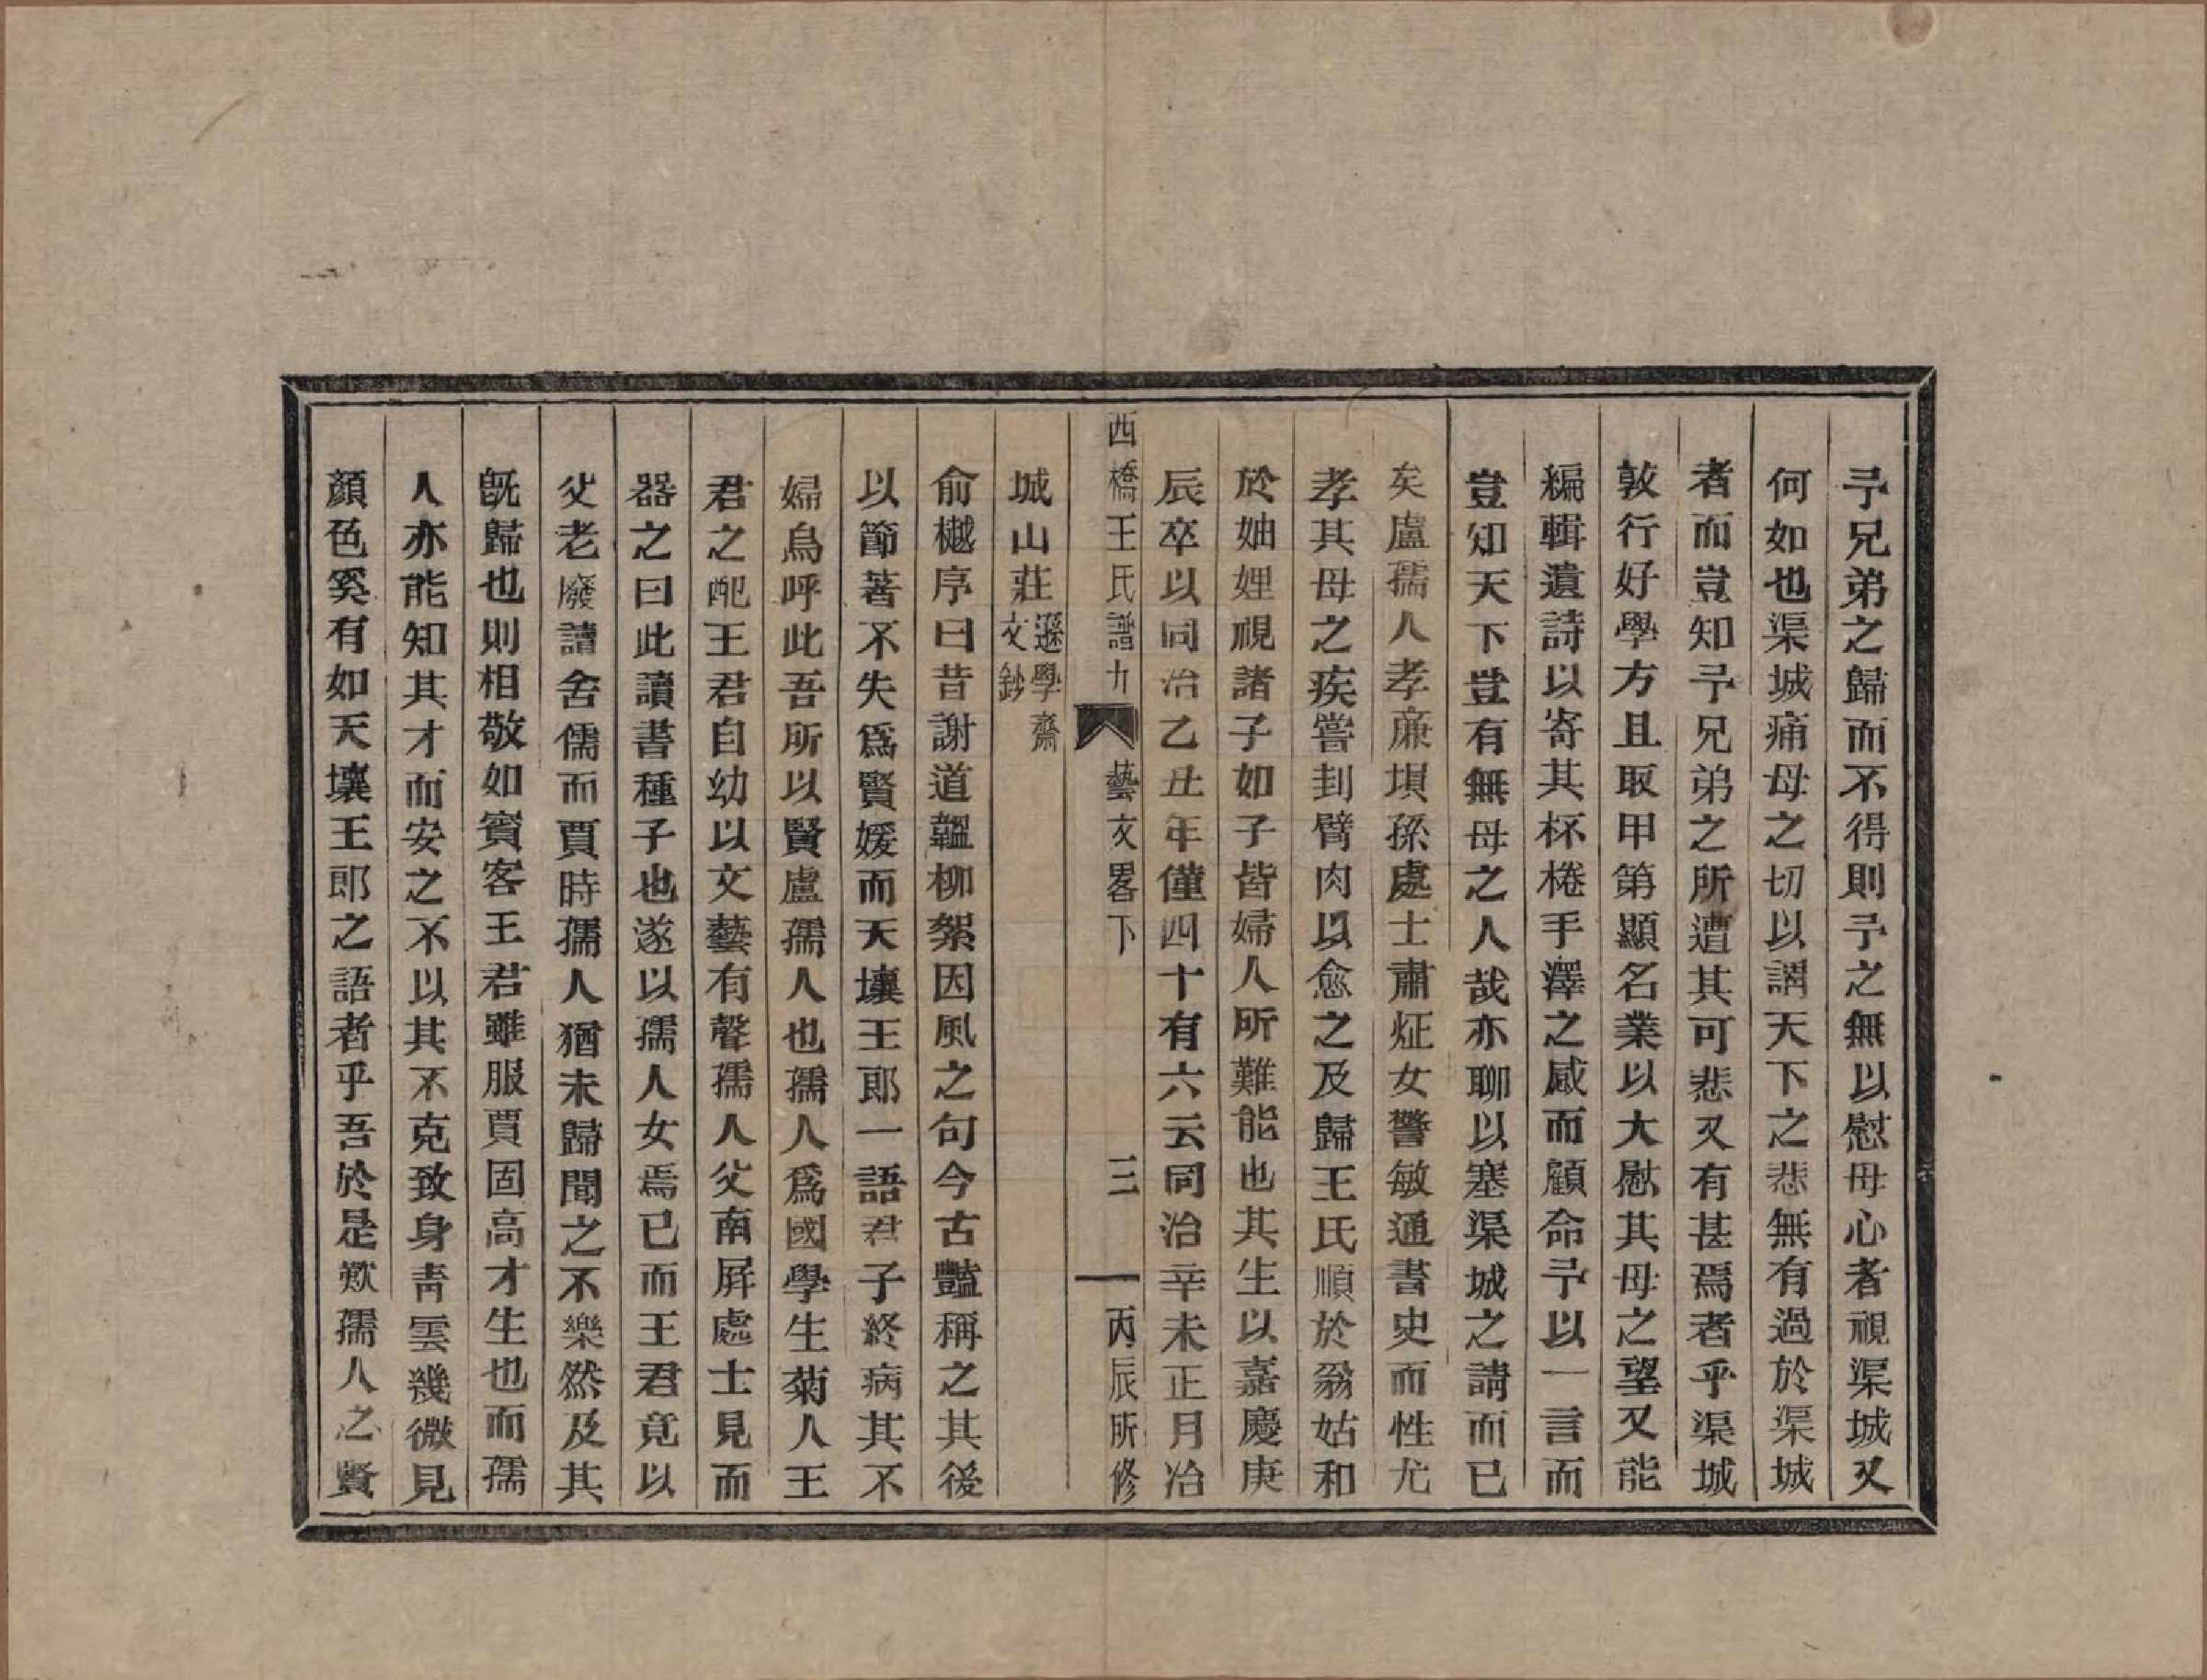 予兄弟之歸而不得則予之無以慰母心者視渠城又
何如也渠城痛母之切以謂天下之悲無有過於渠城
者而豈知予兄弟之所遭其可悲又有甚焉者乎渠城
敦行好學方且取甲第顯名業以大慰其母之望又能
編輯遺詩以寄其杯棬手澤之感而顧命予以一言而
豈知天下豈有無母之人哉亦聊以塞渠城之請而已
矣盧孺人孝亷埧孫處士肅炡女警敏通書史而性尤
孝其母之疾嘗刲臂肉以愈之及歸王氏順於翁姑和
於妯娌視諸子如子皆婦人所難能也其生以嘉慶庚
辰卒以同治乙丑年僅四十有六云同治辛未正月冶
西橋王氏譜九 藝文畧下 三 丙辰所修
城山莊遜學齋文鈔
俞樾序曰昔謝道韞柳絮因風之句今古豔稱之其後
以節著不失爲賢媛而天壤王郎一語君子終病其不
婦烏呼此吾所以賢盧孺人也孺人爲國學生菊人王
君之配王君自幼以文藝有聲孺人父南屏處士見而
器之曰此讀書種子也遂以孺人女焉已而王君竟以
父老廢讀舍儒而賈時孺人猶未歸聞之不樂然及其
旣歸也則相敬如賓客王君雖服賈固高才生也而孺
人亦能知其才而安之不以其不克致身靑雲幾微見
顏色奚有如天壤王郎之語者乎吾於是歎孺人之賢